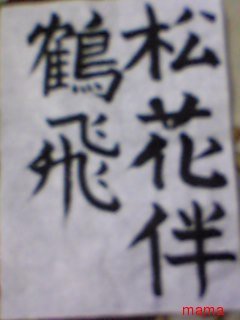 松花伴
鶴飛
mama